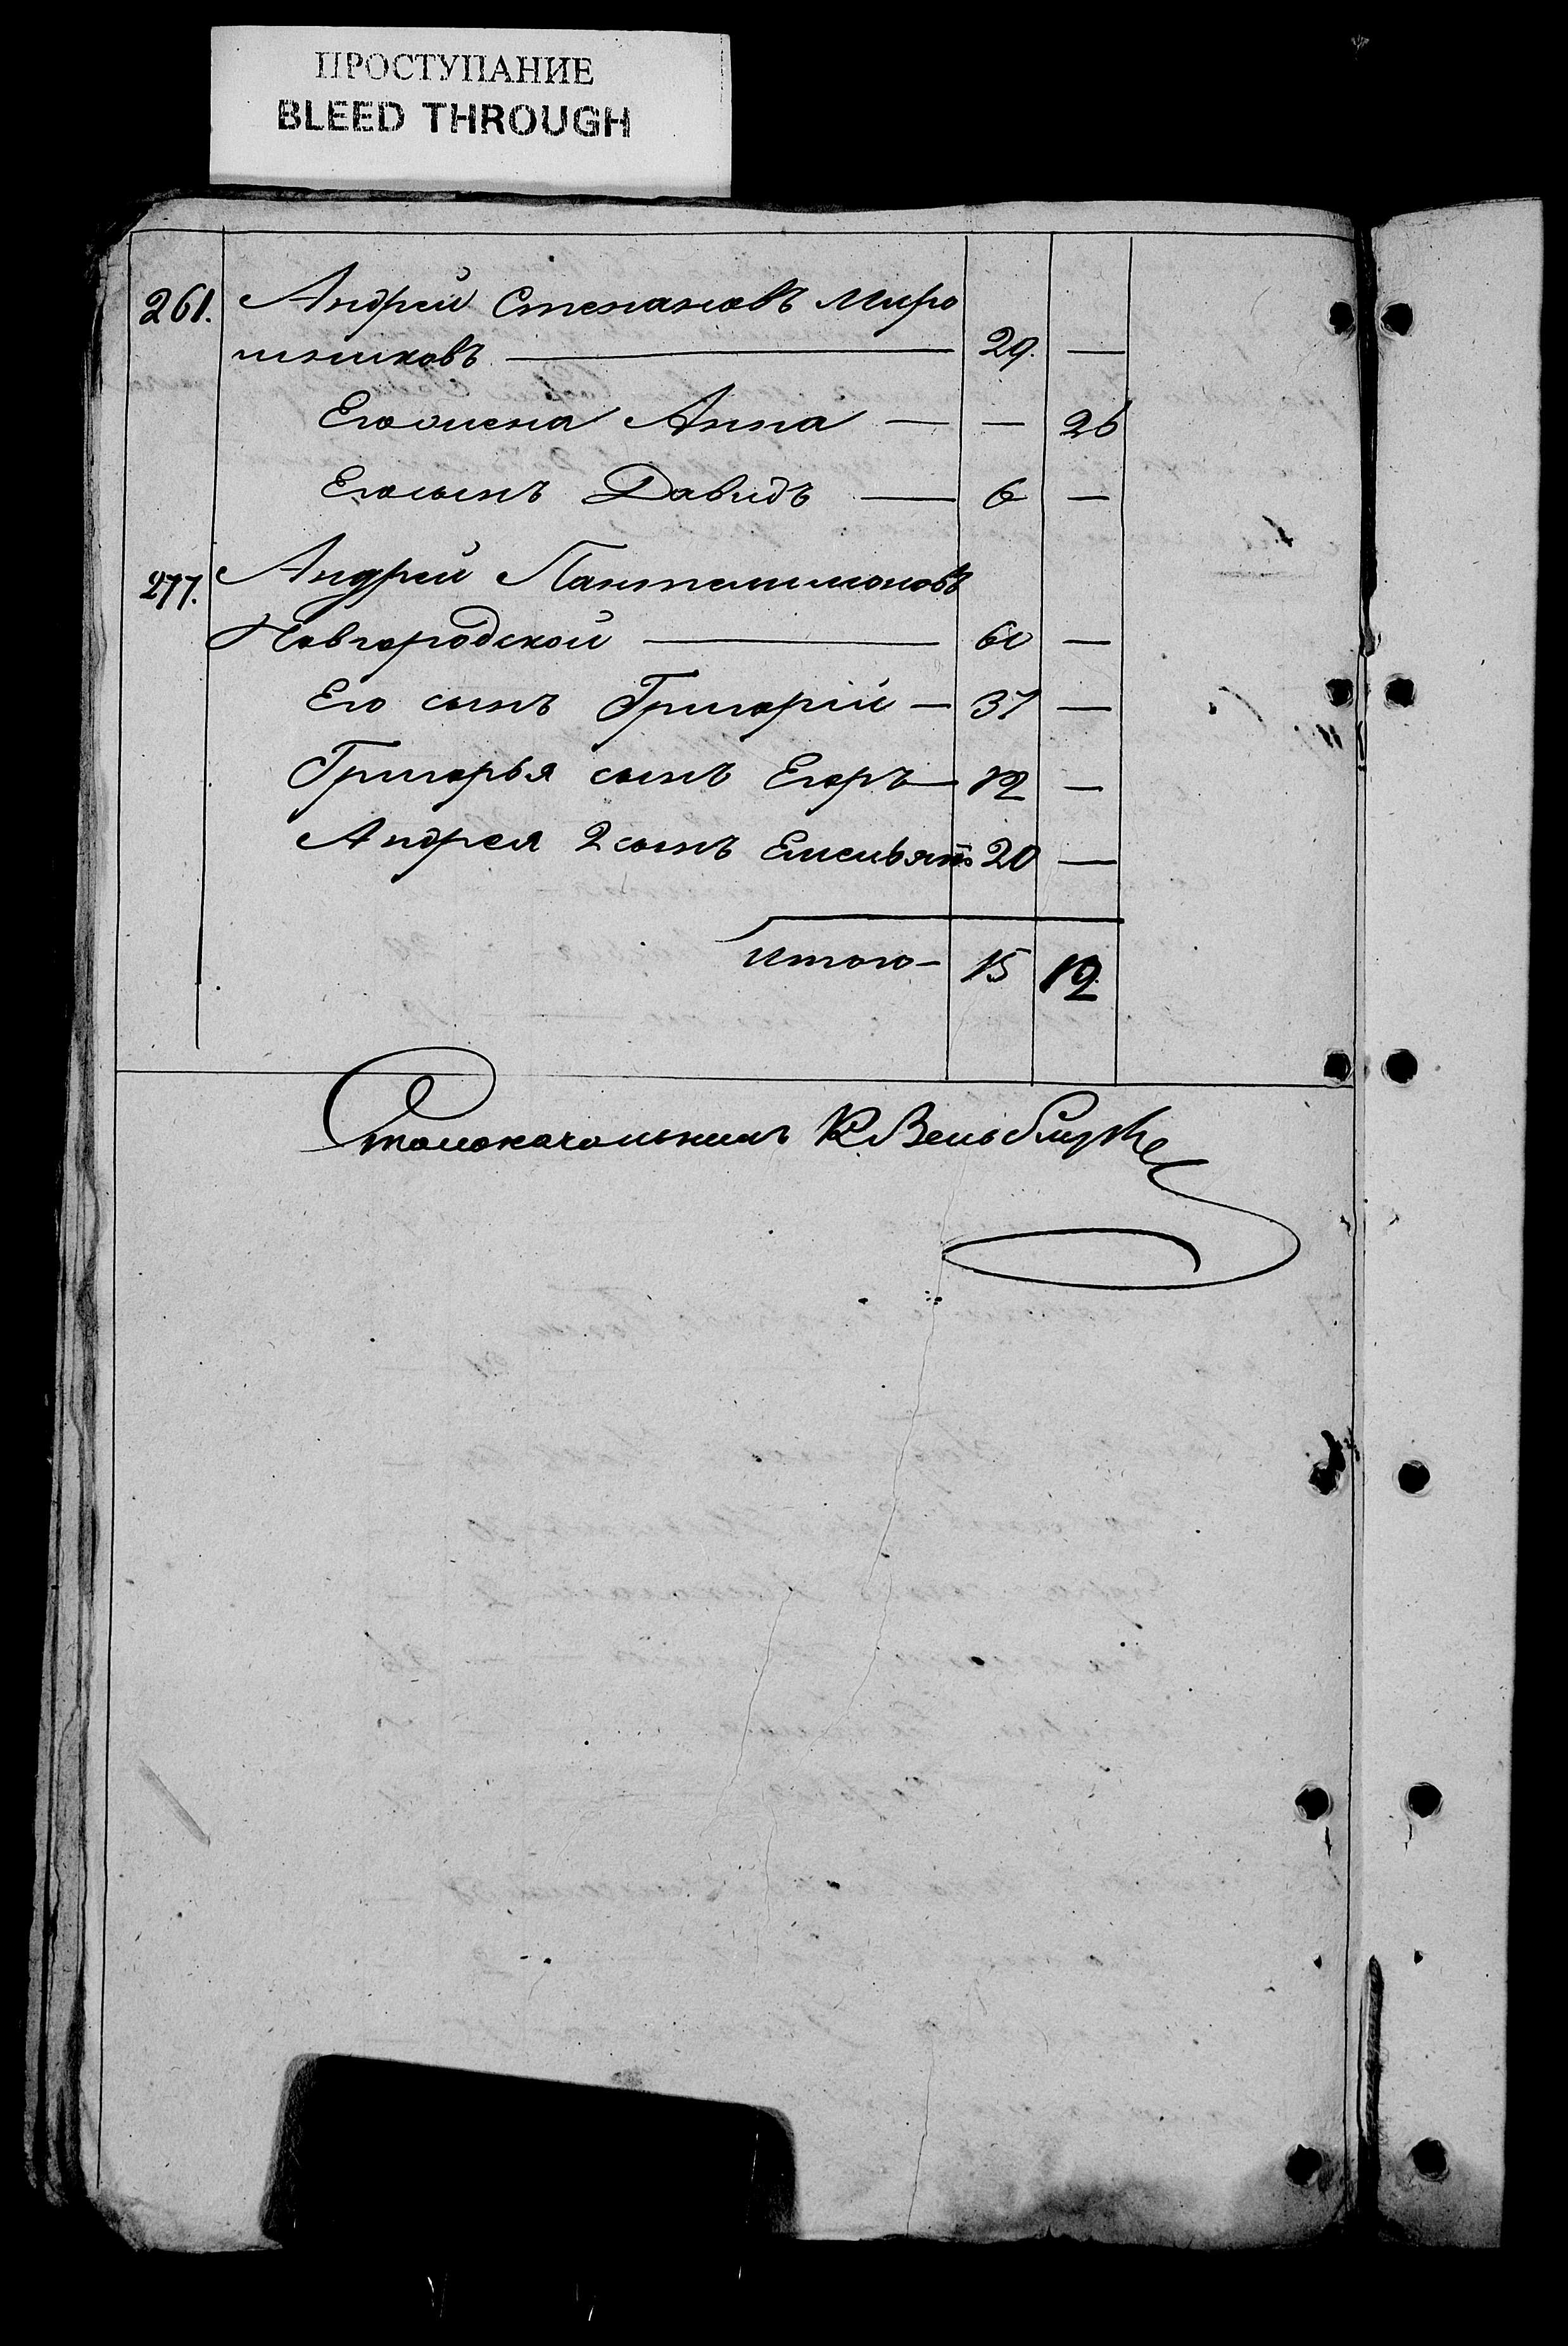 ПРОСТУПАНИЕ
BLEED THROUGH
261. Андрей Степановъ Миро
шниковъ — 29. —
Его жена Анна — — 26
Его сынъ Давидъ — 6 —
277. Андрей Пантелимоновъ
Новгородской — 60 —
Его сынъ Григорій — 37 —
Григорья сынъ Егоръ — 12 —
Андрея 2 сынъ Емельянъ 20 —
Итого — 15 12
Столоначальникъ